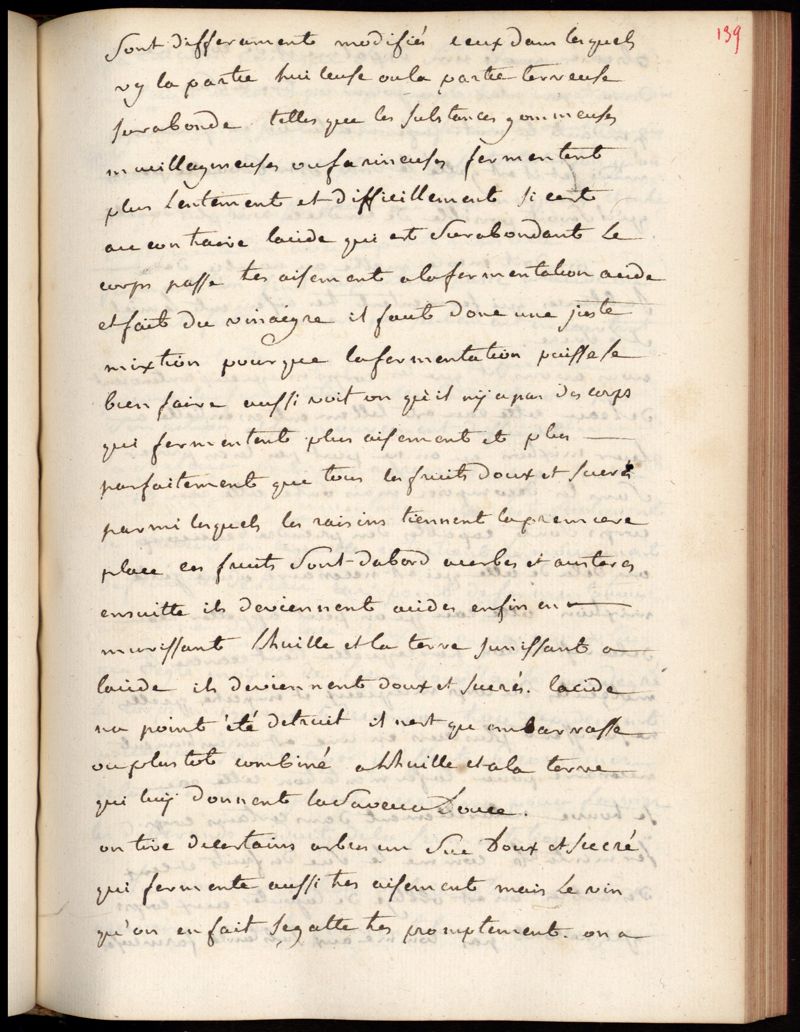 139
Sont differament modifiés ceux dans lesquels
vy la partie huileuse ou la partie terreuse
surabonde telles que les substances gommeuses
mucillagineuses ou farineuses fermentent
plus lentement et difficillement si cest
au contraire lacide qui est surabondant le
corps passe tres aisement a la fermentation acide
et fait du vinaigre il faut donc une juste
mixtion pour que la fermentation puisse se
bien faire aussi voit on qu'il nÿ a pas des corps
qui fermentent plus aisement et plus —
parfaitement que tous les fruits doux et sucrés
parmi lesquels les raisins tiennent la premiere
place ces fruits sont dabord acerbes et austeres
ensuitte ils deviennent acides enfin en —
murissant lhuille et la terre sunissant a
lacide ils deviennent doux et sucrés. lacide
na point été detruit il nest que embarrassé
ou plustot combiné a lhuille et a la terre
qui luÿ donnent la saveur Douce.
on tire de certains arbres un suc Doux et sucré
qui fermente aussi tres aisement mais le vin
qu'on en fait se gatte tres promptement. on a